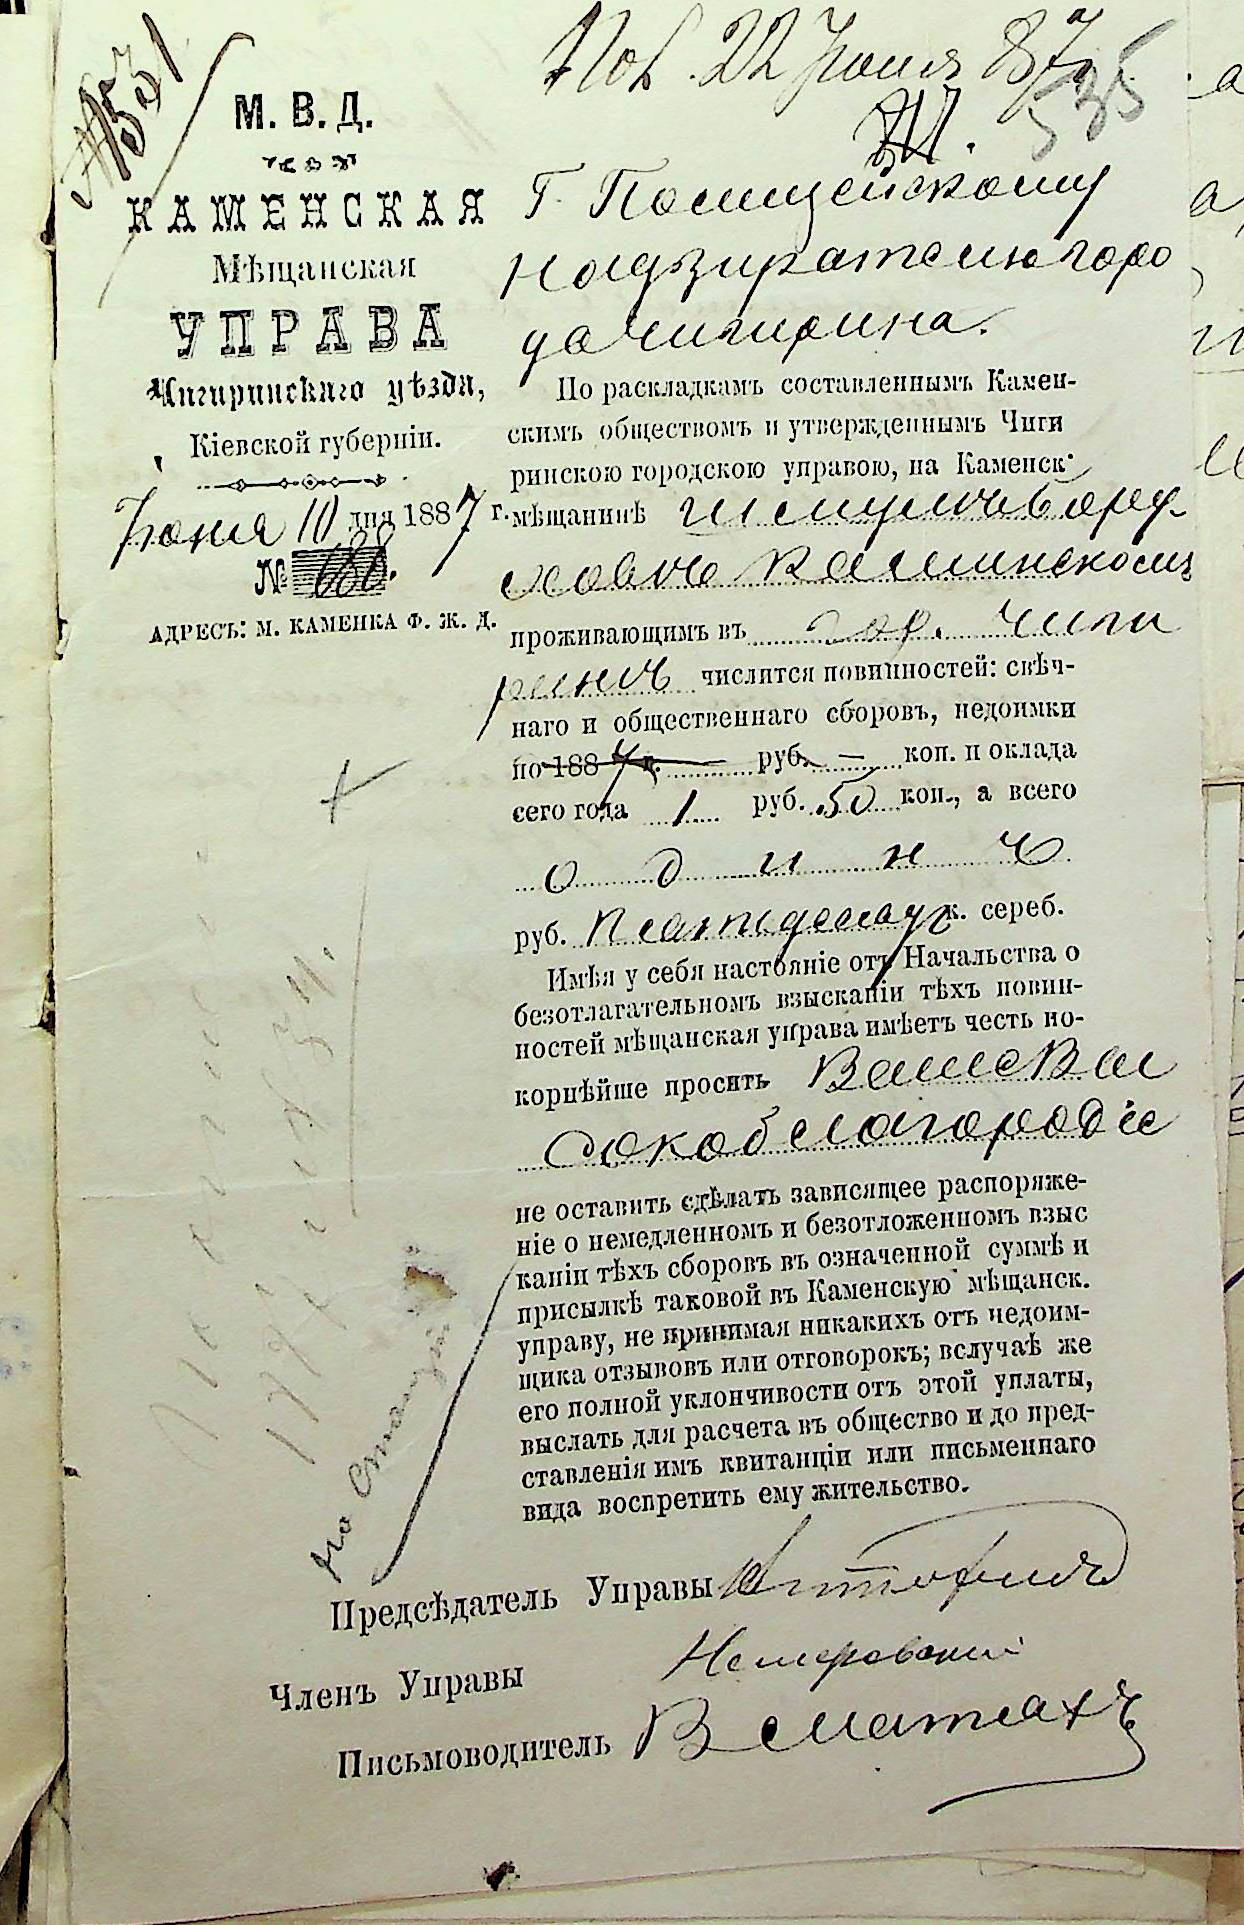 № 531
22 Іюня 87
535
М. В. Д.
КАМЕНСКАЯ
Мѣщанская
УПРАВА
Чигиринскаго уѣзда,
Кіевской губерніи.
Іюня 10 дня 1887 г.
№ 688.
АДРЕСЪ: М. КАМЕНКА Ф. Ж. Д.
Г. Полицейскому
Надзирателю горо
да Чигирина.
По раскладкамъ составленнымъ Камен-
скимъ обществомъ и утвержденнымъ Чиги
ринскою городскою управою, на Каменск.
мѣщанинѣ
Калининскомъ
проживающимъ въ гор. Чиги
ринѣ числится повинностей: свѣч-
наго и общественнаго сборовъ, недоимки
по 1887 г. — руб. — коп. и оклада
сего года 1 руб. 50 коп., а всего
одинъ
руб. пятьдесят к. сереб.
Имѣя у себя настояніе отъ Начальства о
безотлагательномъ взысканіи тѣхъ повин-
ностей мѣщанская управа имѣетъ честь по-
корнѣйше просить Ваше Вы
сокоблагородіе
не оставить сдѣлать зависящее распоряже-
ніе о немедленномъ и безотложенномъ взыс
каніи тѣхъ сборовъ въ означенной суммѣ и
присылкѣ таковой въ Каменскую мѣщанск.
управу, не принимая никакихъ отъ недоим-
щика отзывовъ или отговорокъ; вслучаѣ же
его полной уклончивости отъ этой уплаты,
выслать для расчета въ общество и до пред-
ставленія имъ квитанціи или письменнаго
вида воспретить ему жительство.
Предсѣдатель Управы
Членъ Управы
Письмоводитель В